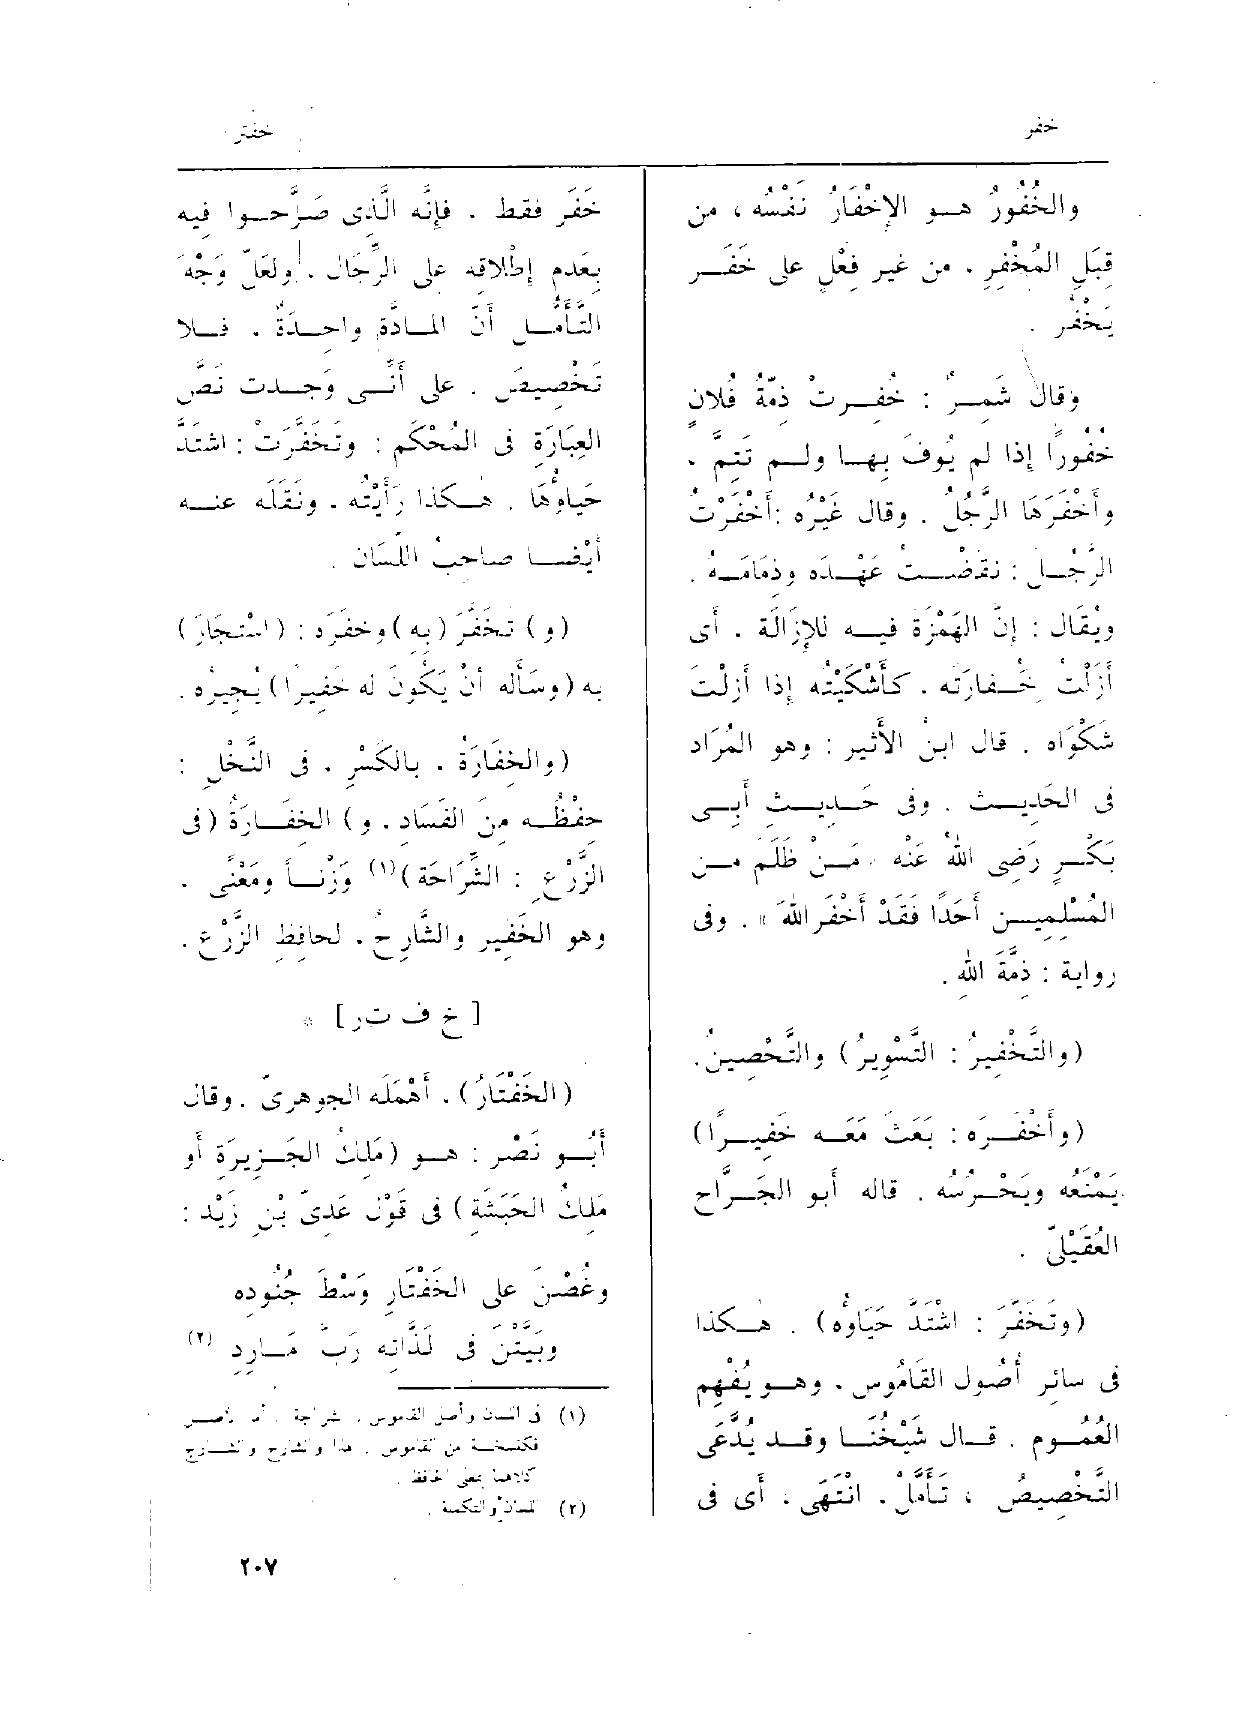 خفر
خفتر
والخُفُورُ هــو الإِخْفَارُ نَفْسُه ، من
قِبَلِ المُخْفِرِ ، من غير فِعْلٍ على خَفَــر
يَخْفُر .
وقال شَمِــرٌ : خُفِــرتْ ذِمَّةُ فُلانٍ
خُفُورًا إذا لم يُوفَ بِهــا ولــم تَتِمَّ ،
وأَخْفَرَهَا الرَّجُلُ . وقال غَيْرُه :أَخْفَرْتُ
الرَّجُــل : نقَضْــتُ عَهْــدَه وذِمَامَــه .
ويُقَال : إنّ الهَمْزَة فيــه للإِزَالَة . أَى
أَزَلْتُ خِــفارَتَه ، كأَشْكَيْتُه إذا أَزلْتَ
شَكْوَاه . قال ابنُ الأَثير : وهو المُرَاد
فى الحَدِيــث . وفى حَــدِيــث أَبِــى
بَكْــرٍ رَضِى اللهُ عَنْه ، مَــنْ ظَلَم مــن
المُسْلِمِيــن أَحَدًا فَقَدْ أَخْفَر اللهَ » . وفى
رواية : ذِمَّةَ اللهِ .
(والتَّخْفِيرُ : التَّسْوِيرُ) والتَّحْصِينُ.
(وأَخْفَــرَه : بَعَثَ مَعَــه خَفِيــرًا)
يَمْنَعُه ويَحْــرُسُه . قاله أبو الجَــرَّاح
العُقَيْلِىّ .
(وتَخَفَّرَ : اشْتَدَّ حَيَاؤُه) . هــكذا
فى سائِر أُصُول القَامُوس ، وهــو يُفْهِم
العُمُــوم . قــال شَيْخُنــا وقــد يُدَّعَى
التَّخْصِيصُ ، تَــأَمَّلْ . انْتَهَى ، أَى فى
خَفَر فقط . فإِنَّه الَّذِى صَرَّحــوا فِيه
بعَدم إِطْلاقِه على الرِّجَال . ولعَلّ وَجْهَ
التَّأَمُّــل أَنّ المَــادَّة واحــدَةٌ . فــلا
تَخْصِيصَ . على أَنِّــى وَجــدت نَصَّ
العِبَارَة فى المُحْكَم : وتَخَفَّرَتْ : اشْتَدَّ
حَيَاؤُهَا . هــكذا رَأَيْتُه ، ونَقَلَه عنــه
أَيْضــا صاحبُ اللِّسَان .
(و) تخَفَّرَ (به) وخَفَرَه : (اسْتَجَارَ)
به (وسَأَله أَنْ يَكُونَ له خَفِيرًا) يُجِيرُه .
(والخِفَارَةُ ، بالكَسْر ، فى النَّخْلِ :
حِفْظُــه مِنَ الفَسَادِ، و) الخِفَــارَةُ (فى
الزَّرْعِ : الشِّرَاحَة)(١) وَزْنــاً ومَعْنًى .
وهو الخَفِير والشَّارِحُ ، لحافِظِ الزَّرْع .
[ خ ف ت ر ] *
(الخَفْتَارُ) ، أَهْمَلَه الجوهَرىّ . وقال
أَبُــو نَصْرٍ : هــو (مَلِكُ الجَــزِيرَة أَو
مَلِكُ الحَبَشَة) فى قَوْل عَدِىّ بْنِ زَيْد :
وغُصْنَ على الخَفْتَارِ وَسْطَ جُنُودِه
وبَيَّتْن فى لَذَّاتِه رَبَّ مَــارِدِ (٢)
(١) فى اللسان وأصل القاموس ، شراجة ،
فكنسخــة من القاموس . هذا والشارح والشــارج
كلاهما بمعنى الحافظ .
(٢) اللسان والتكملة .
٢٠٧